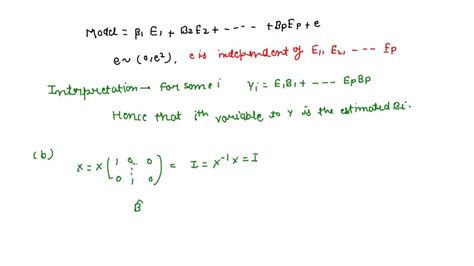 Model = β₁ E₁ + B₂E₂ + ---- + BpEp + e
e ~ (0, e²), e is independent of E₁, E₂, --- Ep
Interpretation → For some i Yᵢ = E₁B₁ + --- EpBp
Hence that iᵗʰ variable to Y is the estimated Bᵢ.
(b)
X = X ( 1 0 0 ⋮ 0 1 0 ) = I = X⁻¹X = I
B̂